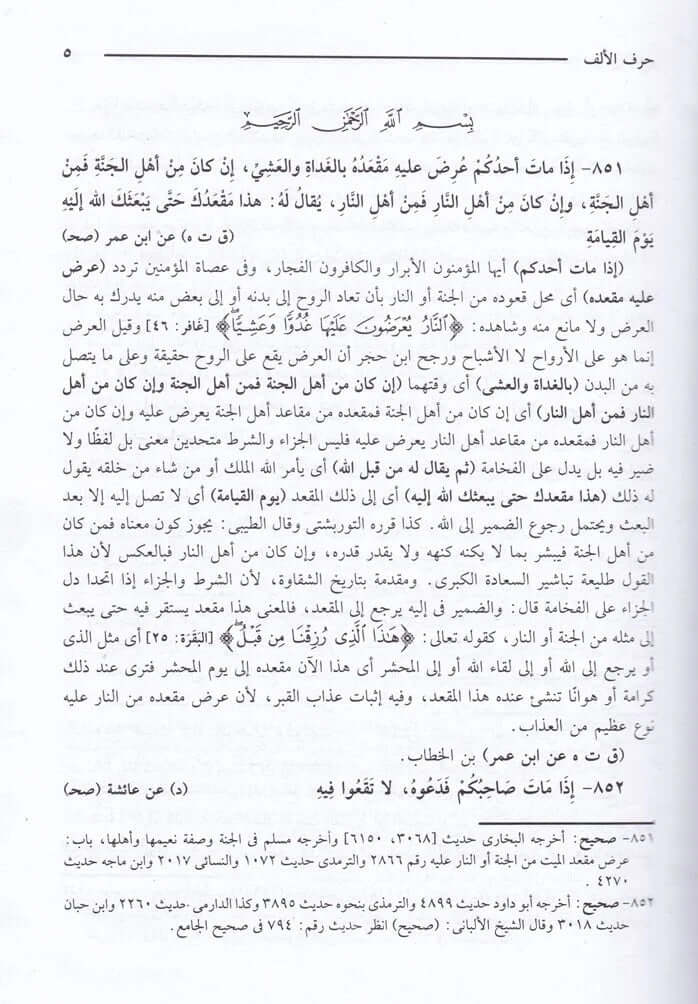 حرف الألف ٥
بِسْمِ اللَّهِ الرَّحْمَٰنِ الرَّحِيمِ
٨٥١- إِذَا ماتَ أحدُكُمْ عُرِضَ عليهِ مَقْعَدُهُ بالغَداةِ والعَشِيِّ، إِنْ كانَ مِنْ أهْلِ الجَنَّةِ فَمِنْ
أهْلِ الجَنَّةِ، وإِنْ كانَ مِنْ أَهْلِ النَّارِ فَمِنْ أهْلِ النَّارِ، يُقالُ لَهُ: هذا مَقْعَدُكَ حَتَّى يَبْعَثَكَ الله إلَيْهِ
يَوْمَ القِيامَةِ (ق ت ه) عن ابن عمر (صحـ)
(إذا مات أحدكم) أيها المؤمنون الأبرار والكافرون الفجار، وفى عصاة المؤمنين تردد (عرض
عليه مقعده) أى محل قعوده من الجنة أو النار بأن تعاد الروح إلى بدنه أو إلى بعض منه يدرك به حال
العرض ولا مانع منه وشاهده: ﴿ٱلنَّارُ يُعْرَضُونَ عَلَيْهَا غُدُوًّا وَعَشِيًّا ۖ﴾ [غَافر: ٤٦] وقيل العرض
إنما هو على الأرواح لا الأشباح ورجح ابن حجر أن العرض يقع على الروح حقيقة وعلى ما يتصل
به من البدن (بالغداة والعشى) أى وقتهما (إن كان من أهل الجنة فمن أهل الجنة وإن كان من أهل
النار فمن أهل النار) أى إن كان من أهل الجنة فمقعده من مقاعد أهل الجنة يعرض عليه وإن كان من
أهل النار فمقعده من مقاعد أهل النار يعرض عليه فليس الجزاء والشرط متحدين معنى بل لفظًا ولا
ضير فيه بل يدل على الفخامة (ثم يقال له من قبل الله) أى يأمر الله الملك أو من شاء من خلقه يقول
له ذلك (هذا مقعدك حتى يبعثك الله إليه) أى إلى ذلك المقعد (يوم القيامة) أى لا تصل إليه إلا بعد
البعث ويحتمل رجوع الضمير إلى الله. كذا قرره التوربشتى وقال الطيبى: يجوز كون معناه فمن كان
من أهل الجنة فيبشر بما لا يكنه كنهه ولا يقدر قدره، وإن كان من أهل النار فبالعكس لأن هذا
القول طليعة تباشير السعادة الكبرى. ومقدمة بتاريخ الشقاوة، لأن الشرط والجزاء إذا اتحدا دل
الجزاء على الفخامة قال: والضمير فى إليه يرجع إلى المقعد، فالمعنى هذا مقعد يستقر فيه حتى يبعث
إلى مثله من الجنة أو النار، كقوله تعالى: ﴿هَٰذَا ٱلَّذِى رُزِقْنَا مِن قَبْلُ ۖ﴾ [البَقَرَة: ٢٥] أى مثل الذى
أو يرجع إلى الله أو إلى لقاء الله أو إلى المحشر أى هذا الآن مقعده إلى يوم المحشر فترى عند ذلك
كرامة أو هوانًا تنشئ عنده هذا المقعد، وفيه إثبات عذاب القبر، لأن عرض مقعده من النار عليه
نوع عظيم من العذاب.
(ق ت ه عن ابن عمر) بن الخطاب.
٨٥٢- إِذَا مَاتَ صَاحِبُكُمْ فَدَعُوهُ، لا تَقَعُوا فِيهِ (د) عن عائشة (صحـ)
٨٥١- صحيح: أخرجه البخارى حديث [٣٠٦٨، ٦١٥٠] وأخرجه مسلم فى الجنة وصفة نعيمها وأهلها، باب:
عرض مقعد الميت من الجنة أو النار عليه رقم ٢٨٦٦ والترمذى حديث ١٠٧٢ والنسائى ٢٠١٧ وابن ماجه حديث
٤٢٧٠ .
٨٥٢- صحيح: أخرجه أبو داود حديث ٤٨٩٩ والترمذى بنحوه حديث ٣٨٩٥ وكذا الدارمى حديث ٢٢٦٠ وابن حبان
حديث ٣٠١٨ وقال الشيخ الألبانى: (صحيح) انظر حديث رقم: ٧٩٤ فى صحيح الجامع.